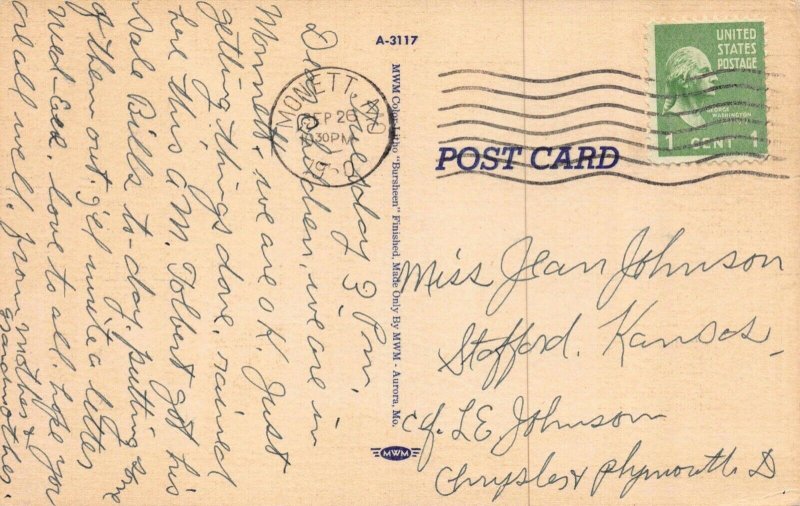 A-3117
MONETT, MO
SEP 26
30PM
UNITED
STATES
POSTAGE
GEORGE
WASHINGTON
1 CENT 1
POST CARD
MWM Color-Litho "Bursheen" Finished, Made Only By MWM - Aurora, Mo.
MWM
Tuesday 3 Pm.
Dear children, we are in
Monett & we are o.K. Just
getting things done, rained
here this a.m. Tolbert got his
Sale Bills to-day. putting some
of them out. I'll write a letter
Wed-Eve. love to all. hope you
are all well. from mother &
Grandmother.
Miss Jean Johnson
Stafford. Kansas.
c/o. L E Johnson
Chrysler & Plymouth D